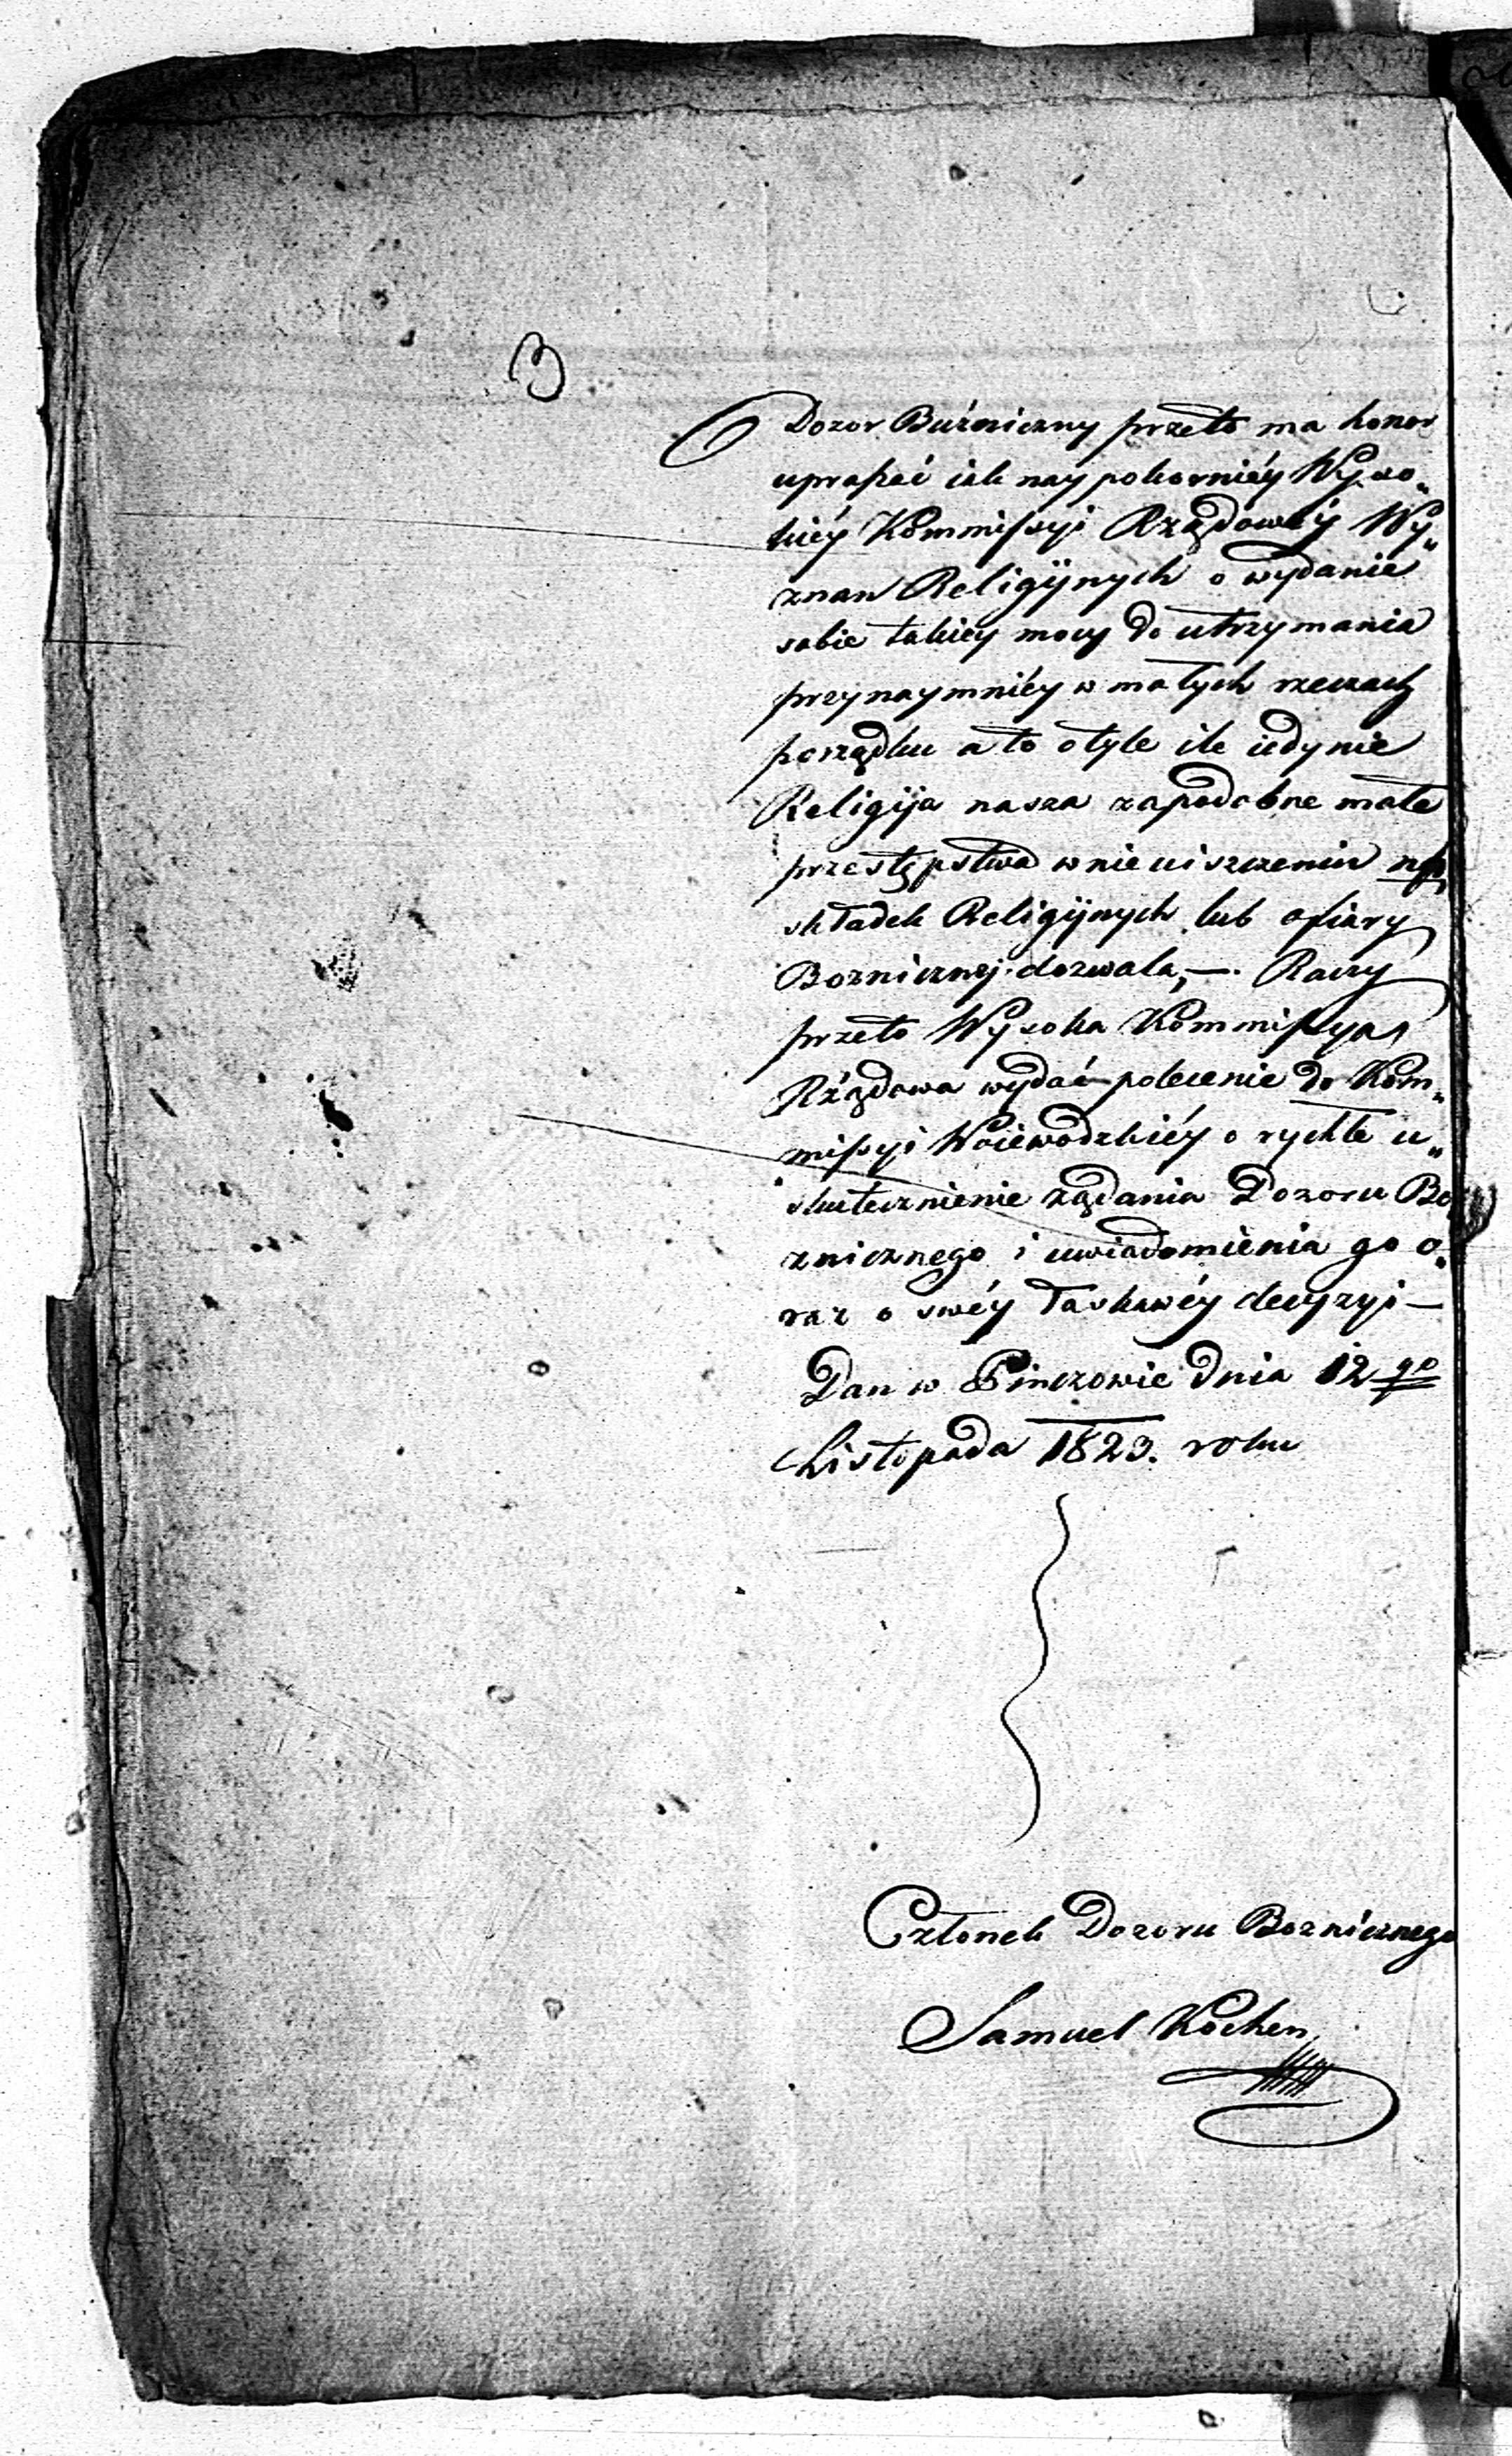 3
Dozor Buźniczny przeto ma honor
upraszać iak naypokorniéy Wyso„
kiéy Kommissyi Rządowéy Wy„
znan Religijnych o wydanie
sobie takiey mocy do utrzymania
przynaymniéy w małych rzeczach
porządku a to otyle ile iedynie
Religija nasza zapodobne małe
przestępstwa w nieuiszczeniu np.
składek Religijnych lub ofiary
Boznicznej dozwala, —. Raczy
przeto Wysoka Kommissya
Rządowa wydać polecenie do Kom„
missyi Woiewodzkiéy o rychłe u„
skutecznienie ządania Dozoru Bo
znicznego i uwiadomienia go o„
raz o swéy łaskawéy decyzyi —
Dan w Pinczowie dnia 12 go
Listopada 1823. roku
Członek Dozoru Boznicznego
Samuel Kochen